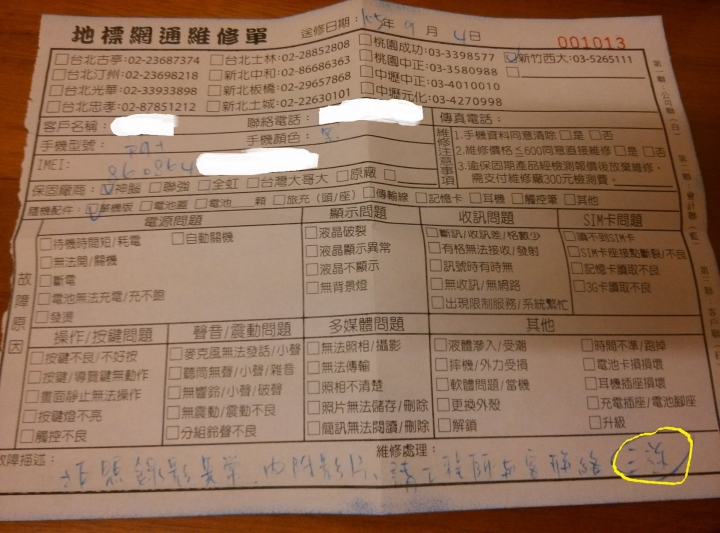 地標網通維修單 送修日期：105年9月4日
001013
台北古亭:02-23687374 台北士林:02-28852808 桃園成功:03-3398577 新竹西大:03-5265111
台北汀州:02-23698218 新北中和:02-86686363 桃園中正:03-3580988
台北光華:02-33933898 新北板橋:02-29657868 中壢中正:03-4010010
台北忠孝:02-87851212 新北土城:02-22630101 中壢元化:03-4270998
客戶名稱： 聯絡電話： 傳真電話：
手機型號： 手機顏色： 維修注意事項 1.手機資料同意清除 是 否
IMEI: 2.維修價格≦600同意直接維修 是 否
3.逾保固期產品經檢測報價後放棄維修，
需支付維修廠300元檢測費。
保固廠商： 神腦 聯強 全虹 台灣大哥大 原廠
隨機配件： 單機版 電池蓋 電池 顆 旅充(頭/座) 傳輸線 記憶卡 耳機 觸控筆 其他
故障原因
電源問題 顯示問題 收訊問題 SIM卡問題
待機時間短/耗電 自動關機 液晶破裂 斷訊/收訊差/格數少 讀不到SIM卡
無法開/關機 液晶顯示異常 有格無法接收/發射 SIM卡座接點斷裂/不良
斷電 液晶不顯示 訊號時有時無 記憶卡讀取不良
電池無法充電/充不飽 無背景燈 無收訊/無網路 3G卡讀取不良
發燙 出現限制服務/系統繁忙
操作/按鍵問題 聲音/震動問題 多媒體問題 其他
按鍵不良/不好按 麥克風無法發話/小聲 無法照相/攝影 液體滲入/受潮 時間不準/跑掉
按鍵/導覽鍵無動作 聽筒無聲/小聲/雜音 無法傳輸 摔機/外力受損 電池卡損損壞
畫面靜止無法操作 無響鈴/小聲/破聲 照相不清楚 軟體問題/當機 耳機插座損壞
按鍵燈不亮 無震動/震動不良 照片無法儲存/刪除 更換外殼 充電插座/電池腳座
觸控不良 分組鈴聲不良 簡訊無法閱讀/刪除 解鎖 升級
故障描述： 維修處理：